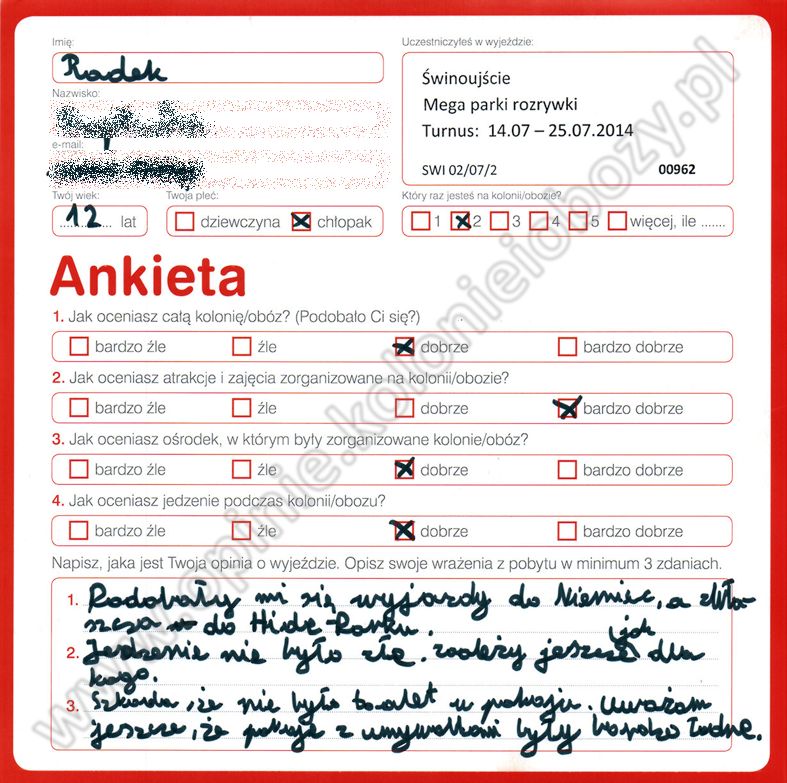 Imię:
Uczestniczyłeś w wyjeździe:
Radek
Świnoujście
Mega parki rozrywki
Turnus: 14.07 – 25.07.2014
SWI 02/07/2
00962
Nazwisko:
e-mail:
Twój wiek:
Twoja płeć:
Który raz jesteś na kolonii/obozie?
12 lat
dziewczyna
chłopak
1 2 3 4 5 więcej, ile .......
Ankieta
1. Jak oceniasz całą kolonię/obóz? (Podobało Ci się?)
bardzo źle źle dobrze bardzo dobrze
2. Jak oceniasz atrakcje i zajęcia zorganizowane na kolonii/obozie?
bardzo źle źle dobrze bardzo dobrze
3. Jak oceniasz ośrodek, w którym były zorganizowane kolonie/obóz?
bardzo źle źle dobrze bardzo dobrze
4. Jak oceniasz jedzenie podczas kolonii/obozu?
bardzo źle źle dobrze bardzo dobrze
Napisz, jaka jest Twoja opinia o wyjeździe. Opisz swoje wrażenia z pobytu w minimum 3 zdaniach.
1. Podobały mi się wyjazdy do Niemiec, a zwła-
szcza do Hide-Parku.
2. Jedzenie nie było złe. zależy jeszcze jak dla
kogo.
3. Szkoda, że nie było toalet w pokoju. Uważam
jeszcze, że pokoje z umywalkami były bardzo ładne.
www.opinie.kolonieiobozy.pl